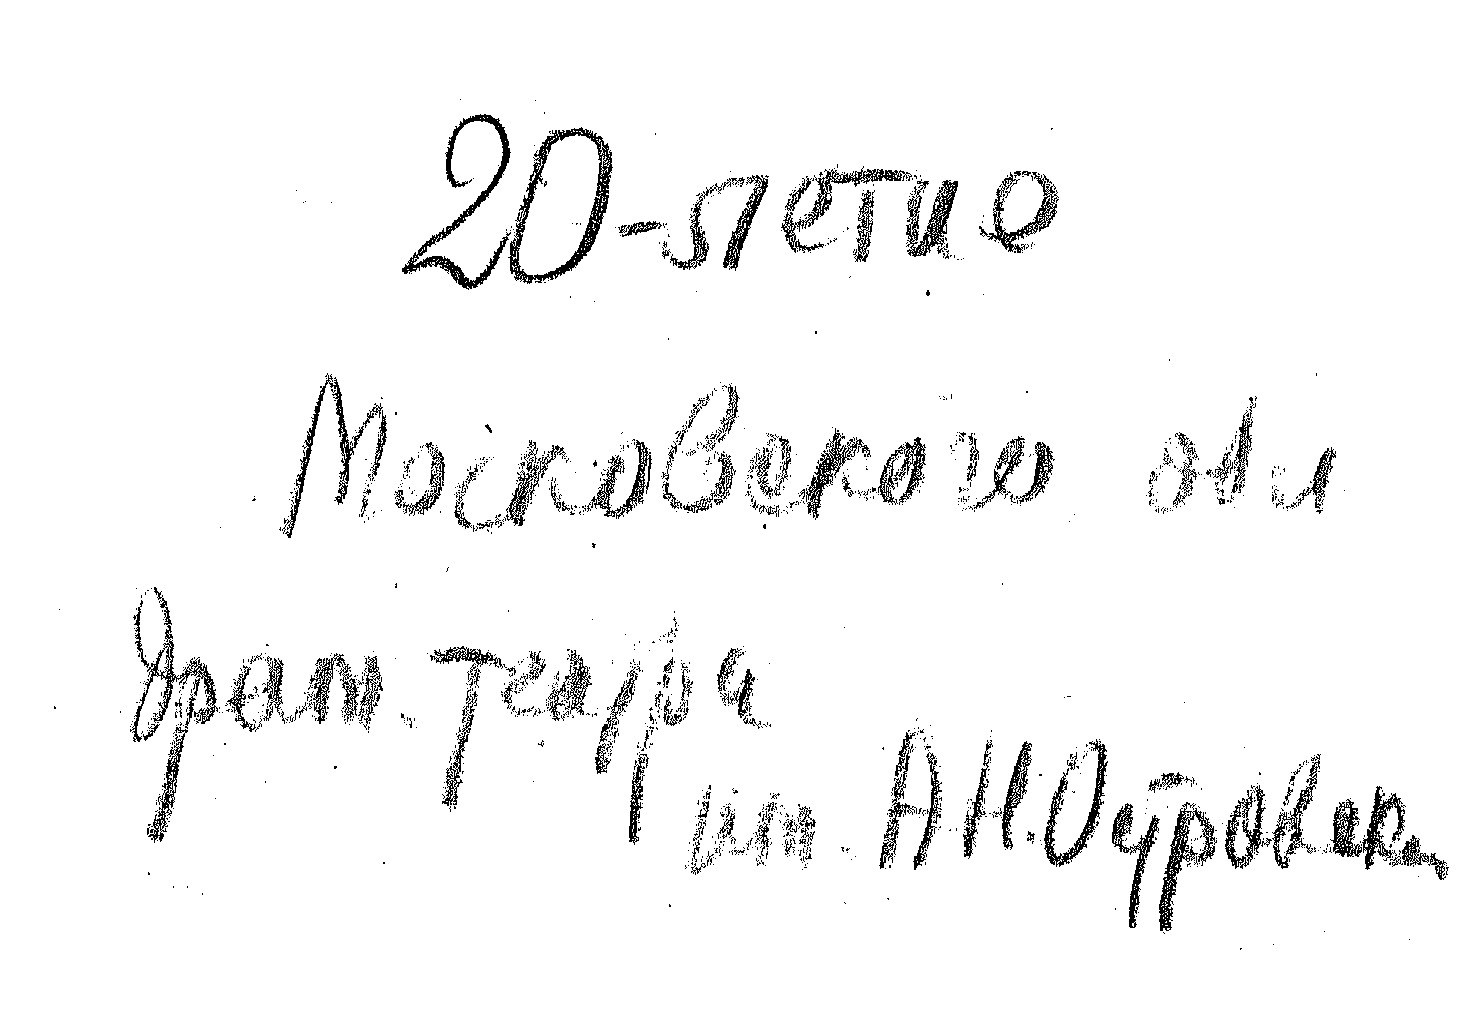 20-летие
Московского обл
Драм. театра
им. А.Н.Островск